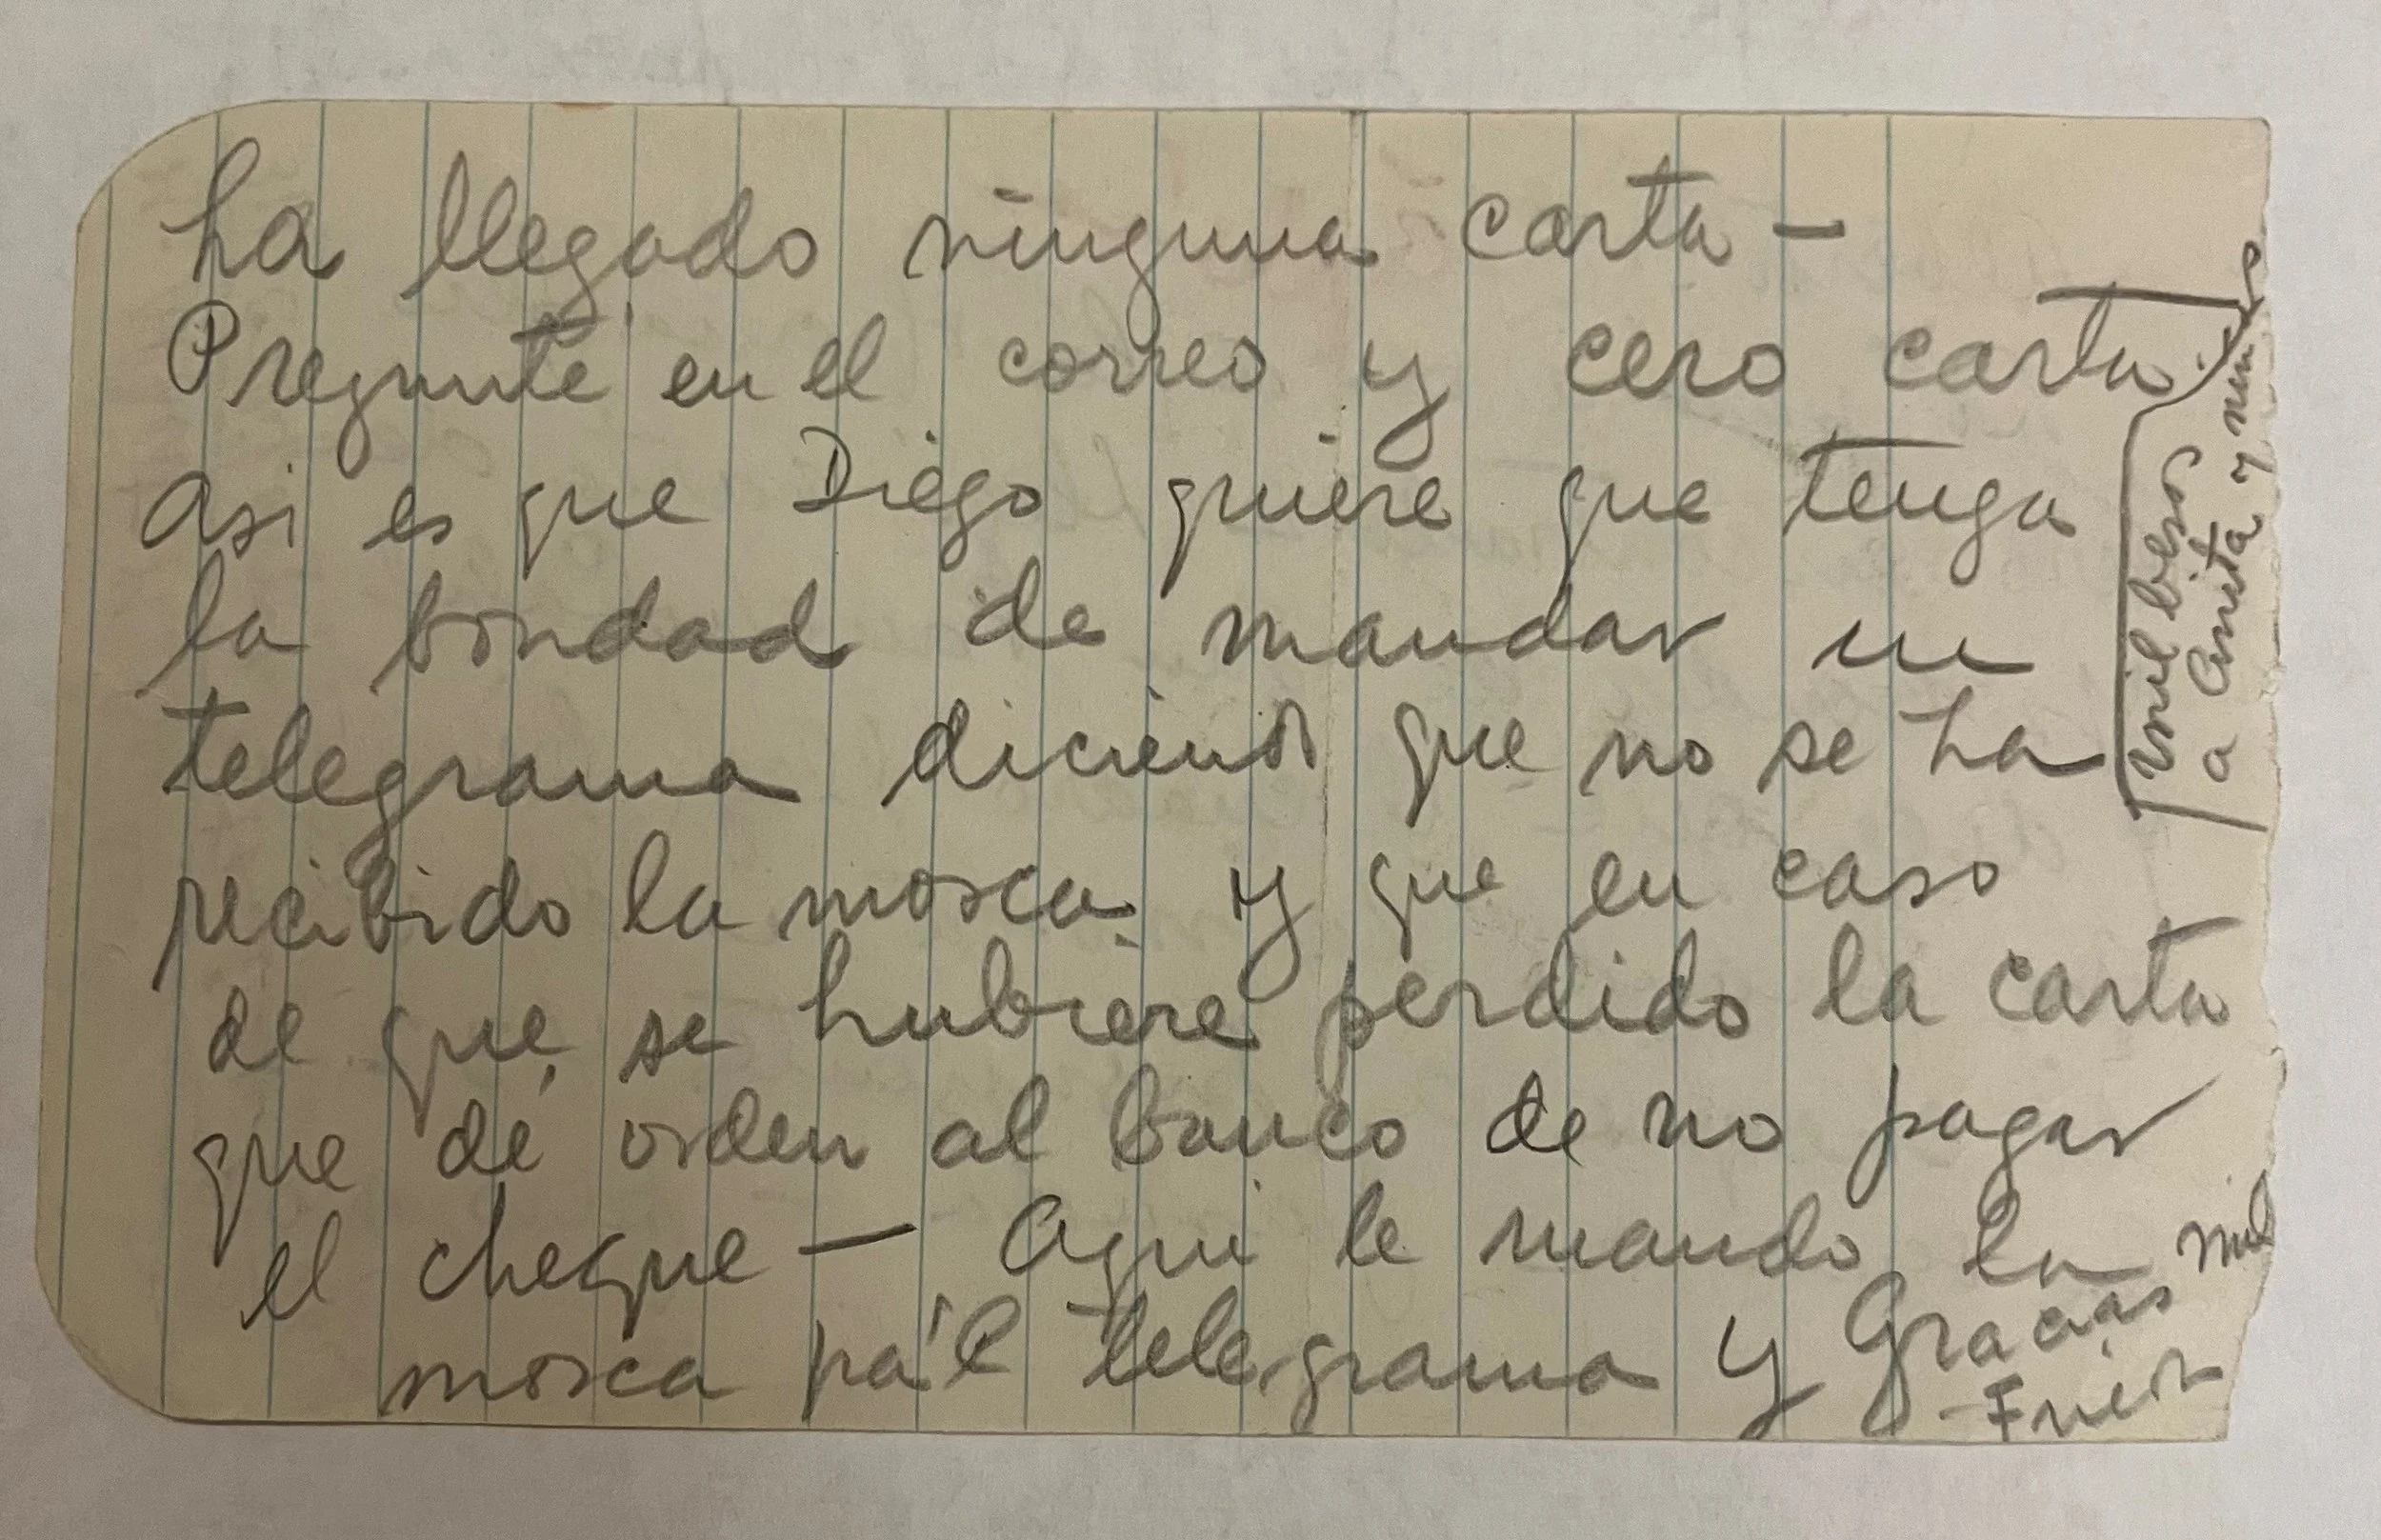 ha llegado ninguna carta –
Pregunté en el correo y cero carta
asi es que Diego quiere que tenga
la bondad de mandar un
telegrama diciendo que no se ha
recibido la mosca y que en caso
de que se hubiere perdido la carta
que dé orden al banco de no pagar
el cheque – Aqui le mando la
mosca pa'l telegrama y Gracias mil
mil besos
a Anita y